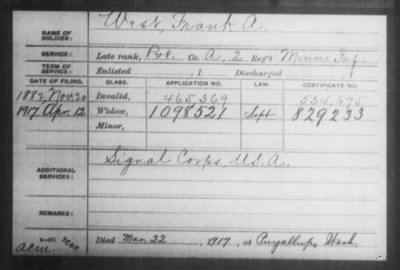 NAME OF SOLDIER: West, Frank A.
SERVICE: Late rank, Pvt. Co. A, 2 Reg't Minn. Inf.
TERM OF SERVICE: Enlisted , 1 Discharged , 1
DATE OF FILING. CLASS. APPLICATION NO. LAW. CERTIFICATE NO.
1882 Nov. 20 Invalid, 465,369 534,675
1917 Apr. 12 Widow, 1098521 Sept 829233
Minor,
ADDITIONAL SERVICES: Signal Corps U.S.A.
REMARKS:
acm. Died Mar. 22, 1917, at Puyallup, Wash.